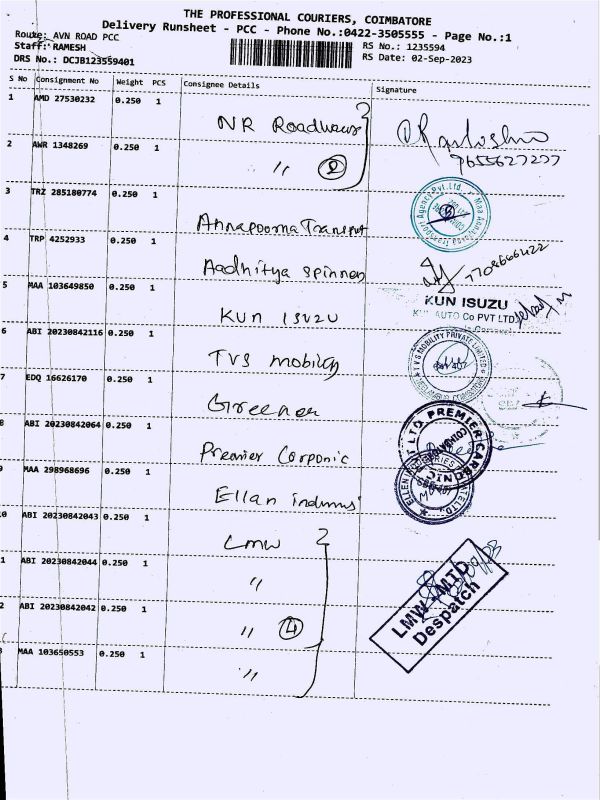 THE PROFESSIONAL COURIERS, COIMBATORE
Delivery Runsheet - PCC - Phone No.:0422-3505555 - Page No.:1
Route: AVN ROAD PCC
Staff: RAMESH
RS No.: 1235594
DRS No.: DCJB123559401
RS Date: 02-Sep-2023
S No Consignment No Weight PCS Consignee Details Signature
1 AMD 27530232 0.250 1 NR Roadways
2 AWR 1348269 0.250 1 〃 2
9655627277
3 TRZ 285180774 0.250 1 Annapoorna Transport
4 TRP 4252933 0.250 1 Aadhitya spinners
7708666422
5 MAA 103649850 0.250 1 KUN ISUZU
KUN ISUZU
KUN AUTO Co PVT LTD
6 ABI 20230842116 0.250 1 TVS mobility
TVS MOBILITY PRIVATE LIMITED
7 EDQ 16626170 0.250 1 Greener
8 ABI 20230842064 0.250 1 Premier Corponic
PREMIER CARBONIC
9 MAA 298968696 0.250 1 Ellan
0 ABI 20230842043 0.250 1 LMW
1 ABI 20230842044 0.250 1 〃
2 ABI 20230842042 0.250 1 〃 4
3 MAA 103650553 0.250 1 〃
LMW MTD
Despatch